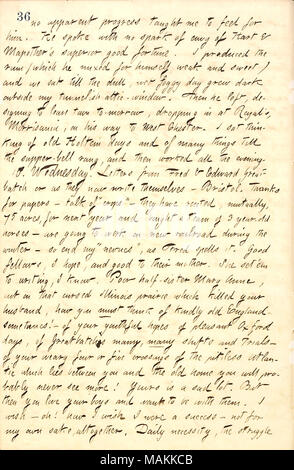 36
no apparent progress taught me to feel for
him. He spoke with no spark of envy of Hart &
Mapother's superior good fortune. I produced the
rum (which he mixed for himself weak and sweet)
and we sat till the dull, wet foggy day grew dark
outside my tunnelish attic-window. Then he left, de-
signing to leave town to-morrow, dropping in at Royal's,
Morrisania, on his way to West Chester. I sat think-
ing of old Holborn days and of many things till
the supper-bell rang, and then worked all the evening.
10. Wednesday. Letters from Fred & Edward Great-
batch or as they now write themselves – Bristol. Thanks
for papers – talk of "crops" – they have rented, mutually,
75 acres, for next year and bought a team of 3 year old
horses – are going to work on new railroad during the
winter – so end my "newes", as Fred spells it. Good
fellows, I hope, and good to their mother. She set em
to writing, I know. Poor half-sister Mary Anne,
out on that cursed Illinois prairie which killed your
husband, how you must think of kindly old England
sometimes! – of your youthful hopes of pleasant Oxford
days, of Greatbatch's many, many shifts and trials –
of your weary four or five crossings of the pitiless Atlan-
tic which lies between you and the old home you will pro-
bably never see more! Yours is a sad lot. But
then you love your boys and want to be with them. I
wish – oh! how I wish I were a success – not for
my own sake, altogether. Daily necessity, the struggle
alamy
Image ID: MAKKCB
www.alamy.com